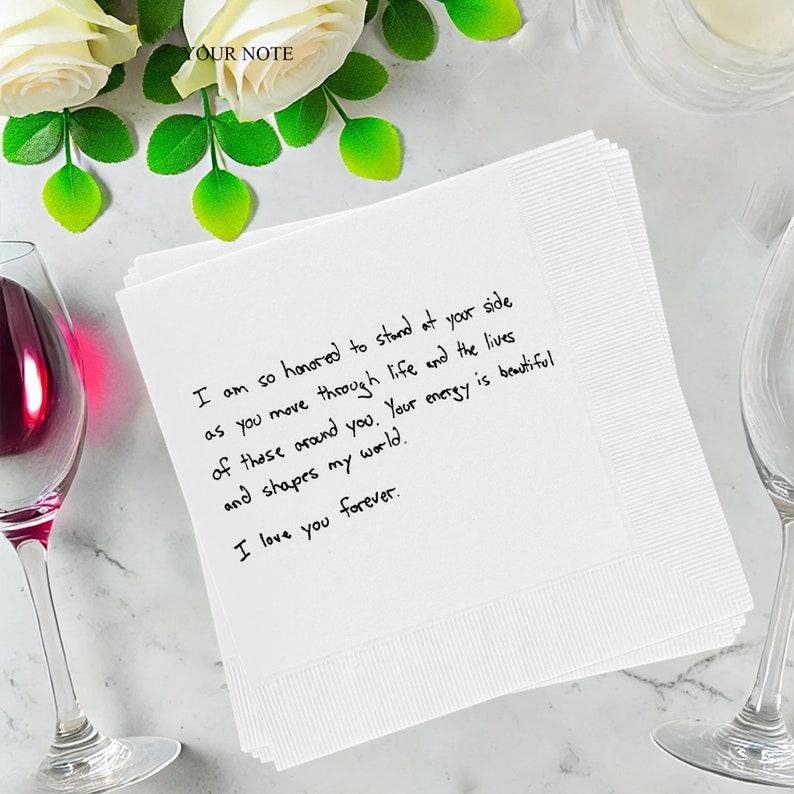 YOUR NOTE
I am so honored to stand at your side
as you move through life and the lives
of those around you. Your energy is beautiful
and shapes my world.
I love you forever.